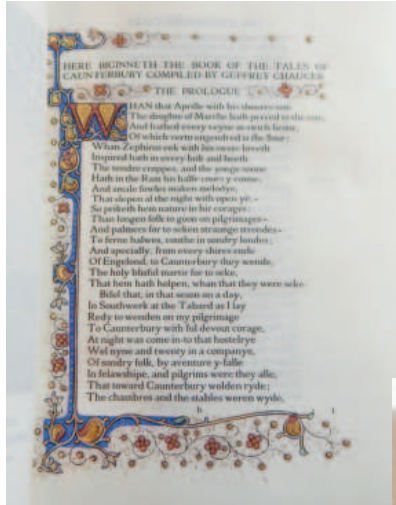 HERE BIGINNETH THE BOOK OF THE TALES OF
CAUNTERBURY COMPILED BY GEFFRET CHAUCER
THE PROLOGUE
WHAN that Aprille with his shoures sote
The droghte of Marche hath perced to the rote,
And bathed every veyne in swich licour,
Of which vertu engendred is the flour;
Whan Zephirus eek with his swete breeth
Inspired hath in every holt and heeth
The tendre croppes, and the yonge sonne
Hath in the Ram his halfe cours y-ronne,
And smale fowles maken melodye,
That slepen al the night with open yë,–
So priketh hem nature in hir corages:
Than longen folk to goon on pilgrimages–
And palmers for to seken straunge strondes–
To ferne halwes, couthe in sondry londes;
And specially, from every shires ende
Of Engelond, to Caunterbury they wende,
The holy blisful martir for to seke,
That hem hath holpen, whan that they were seke.
Bifel that, in that seson on a day,
In Southwerk at the Tabard as I lay
Redy to wenden on my pilgrimage
To Caunterbury with ful devout corage,
At night was come in-to that hostelrye
Wel nyne and twenty in a companye,
Of sondry folk, by aventure y-falle
In felawshipe, and pilgrims were they alle,
That toward Caunterbury wolden ryde;
The chambres and the stables weren wyde,
b 1